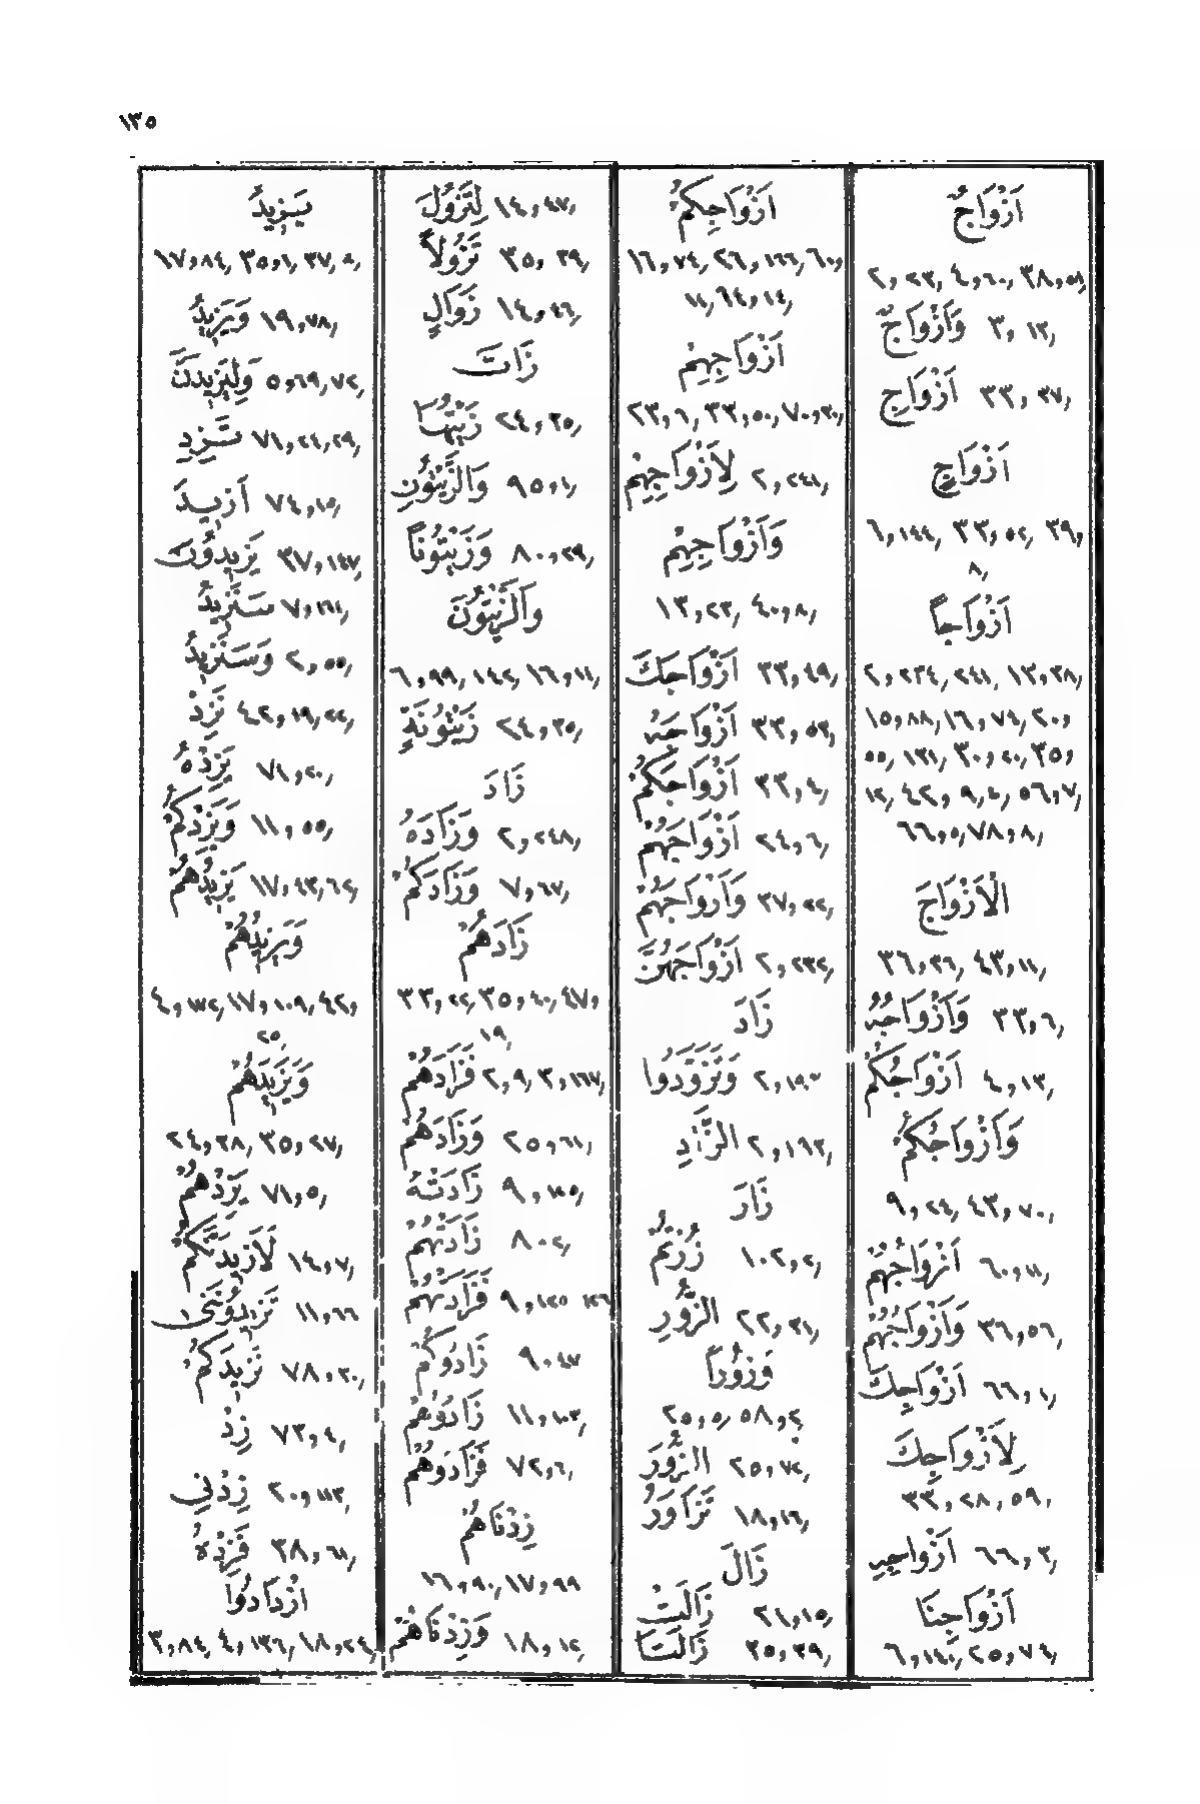 ١٣٥
اَزْوَاجٌ
٢,٢٣, ٤,٦٠, ٣٨,٥٨,
وَاَزْوَاجٌ ٣, ١٣,
اَزْوَاجِ ٣٣,٣٧,
اَزْوَاجٍ
٦,١٤٤, ٣٣,٥٢, ٣٩,
٨,
اَزْوَاجاً
٢,٢٣٤, ٢٤١, ١٣,٣٨,
١٥,٨٨, ١٦, ٧٤, ٢٠,
٥٥, ١٣١, ٣٠,٢٠, ٣٥,
١٢, ٤٢, ٩,٤, ٥٦,٧,
٦٦,٥, ٧٨,٨,
الْاَزْوَاجَ
٣٦,٣٦, ٤٣,١١,
وَاَزْوَاجُهُ ٣٣,٦,
اَزْوَاجُكُمْ ٤,١٣,
وَاَزْوَاجُكُمْ
٩,٢٤, ٤٣,٧٠,
اَزْوَاجُهُمْ ٦٠,١١,
وَاَزْوَاجُهُمْ ٣٦,٥٦,
اَزْوَاجِكَ ٦٦,١,
لِاَزْوَاجِكَ
٣٣,٢٨, ٥٩,
اَزْوَاجِهِ ٦٦,٣,
اَزْوَاجِنَا
٦,١٤٠, ٢٥,٧٤,
اَزْوَاجِكُمْ
١٦,٧٤, ٢٦,١٦٦, ٦٠,
١١, ٦٤,١٤,
اَزْوَاجِهِمْ
٢٣,٦, ٣٣,٥٠, ٧٠,٣٠,
لِاَزْوَاجِهِمْ ٢,٢٤١,
وَاَزْوَاجِهِمْ
١٣,٢٣, ٤٠,٨,
اَزْوَاجَكَ ٣٣,٤٩,
اَزْوَاجَهُ ٣٣,٥٣,
اَزْوَاجَكُمْ ٣٣,٤,
اَزْوَاجَهُمْ ٢٤,٦,
وَاَزْوَاجَهُمْ ٣٧,٢٢,
اَزْوَاجَهُنَّ ٢,٢٣٢,
زَادَ
وَتَزَوَّدُوا ٢,١٩٧
الزَّادِ ٢,١٩٧,
زَارَ
زُرْتُمُ ١٠٢,٢,
الزُّورِ ٢٢,٣١,
وَزُوراً
٢٥,٥, ٥٨,٢,
الزُّورَ ٢٥,٧٢,
تَزَاوَرُ ١٨,١٦,
زَالَ
زَالَتْ ٢١,١٥,
زَالَتَا ٣٥,٣٩,
لِتَزُولَ ١٤,٤٧,
تَزُولاَ ٣٥,٣٩,
زَوَالٍ ١٤,٤٦,
زَاتَ
زَيْتُهَا ٢٤,٣٥,
وَالزَّيْتُونِ ٩٥,١,
وَزَيْتُوناً ٨٠,٢٩,
وَالزَّيْتُونَ
٦,٩٩, ١٤٢, ١٦,١١,
زَيْتُونَةٍ ٢٤,٣٥,
زَادَ
وَزَادَهُ ٢,٢٤٨,
وَزَادَكُمْ ٧,٦٧,
زَادَهُمْ
٣٣,٢٢, ٣٥,٤٠, ٤٧,
١٩,
فَزَادَهُمْ ٢,٩, ٣,١٦٧,
وَزَادَهُمْ ٢٥,٦١,
زَادَتْهُ ٩,١٢٥,
زَادَتْهُمْ ٨,٢,
فَزَادَتْهُمْ ٩,١٢٥ ١٢٦
زَادُوكُمْ ٩,٤٧
زَادُوهُمْ ١١,١٠٣,
فَزَادُوهُمْ ٧٢,٦,
زِدْنَاهُمْ
١٦,٩٠, ١٧,٩٨
وَزِدْنَاهُمْ ١٨,١٢,
يَزِيدُ
١٧,٨٤, ٣٥,١, ٣٧, ٨,
وَيَزِيدُ ١٩,٧٨,
وَلَيَزِيدَنَّ ٥,٦٩, ٧٢,
تَزِدِ ٧١,٢٤, ٢٩,
اَزِيدَ ٧٤,١٥,
يَزِيدُونَ ٣٧,١٤٧,
سَنَزِيدُ ٧,١٦١,
وَسَنَزِيدُ ٢,٥٥,
نَزِدْ ٤٢,١٩, ٢٢,
يَزِدْهُ ٧١,٢٠,
وَيَزِدْكُمْ ١١,٥٥,
يَزِيدُهُمْ ١٧,٤٣, ٦٢,
وَيَزِيدُهُمْ
٤,١٧٢, ١٧,١٠٩, ٤٢,
٢٥,
وَيَزِيدَهُمْ
٢٤,٣٨, ٣٥,٢٧,
يَزِدْهُمْ ٧١,٥,
لَاَزِيدَنَّكُمْ ١٤,٧,
تَزِيدُونَنِي ١١,٦٦
نَزِيدَكُمْ ٧٨,٣٠,
زِدْ ٧٣,٤,
زِدْنِي ٢٠,١١٣,
فَزِدْهُ ٣٨,٦١,
ازْدَادُوا
٣,٨٤, ٤,١٣٦, ١٨,٢٤,